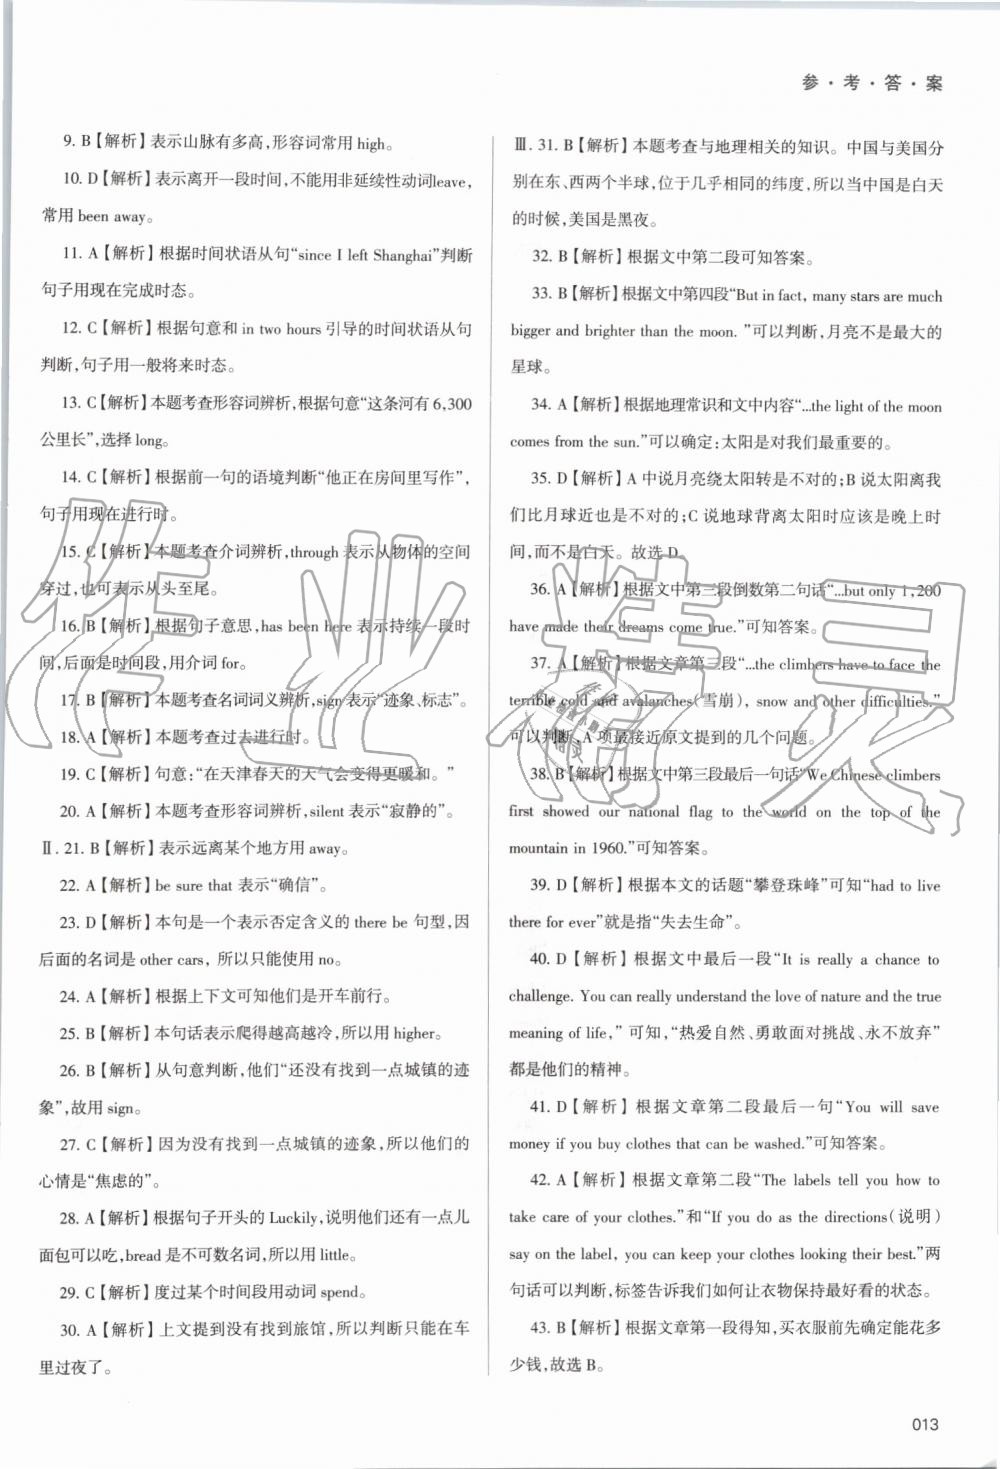 参·考·答·案
9. B【解析】表示山脉有多高,形容词常用 high。
10. D【解析】表示离开一段时间,不能用非延续性动词leave,
常用 been away。
11. A【解析】根据时间状语从句“since I left Shanghai”判断
句子用现在完成时态。
12. C【解析】根据句意和 in two hours 引导的时间状语从句
判断,句子用一般将来时态。
13. C【解析】本题考查形容词辨析,根据句意“这条河有 6,300
公里长”,选择 long。
14. C【解析】根据前一句的语境判断“他正在房间里写作”,
句子用现在进行时。
15. C【解析】本题考查介词辨析,through 表示从物体的空间
穿过,也可表示从头至尾。
16. B【解析】根据句子意思,has been here 表示持续一段时
间,后面是时间段,用介词 for。
17. B【解析】本题考查名词词义辨析,sign 表示“迹象、标志”。
18. A【解析】本题考查过去进行时。
19. C【解析】句意:“在天津春天的天气会变得更暖和。”
20. A【解析】本题考查形容词辨析,silent 表示“寂静的”。
Ⅱ. 21. B【解析】表示远离某个地方用 away。
22. A【解析】be sure that 表示“确信”。
23. D【解析】本句是一个表示否定含义的 there be 句型,因
后面的名词是 other cars, 所以只能使用 no。
24. A【解析】根据上下文可知他们是开车前行。
25. B【解析】本句话表示爬得越高越冷,所以用 higher。
26. B【解析】从句意判断,他们“还没有找到一点城镇的迹
象”,故用 sign。
27. C【解析】因为没有找到一点城镇的迹象,所以他们的
心情是“焦虑的”。
28. A【解析】根据句子开头的 Luckily,说明他们还有一点儿
面包可以吃,bread 是不可数名词,所以用 little。
29. C【解析】度过某个时间段用动词 spend。
30. A【解析】上文提到没有找到旅馆,所以判断只能在车
里过夜了。
Ⅲ. 31. B【解析】本题考查与地理相关的知识。中国与美国分
别在东、西两个半球,位于几乎相同的纬度,所以当中国是白天
的时候,美国是黑夜。
32. B【解析】根据文中第二段可知答案。
33. B【解析】根据文中第四段“But in fact, many stars are much
bigger and brighter than the moon. ”可以判断,月亮不是最大的
星球。
34. A【解析】根据地理常识和文中内容“...the light of the moon
comes from the sun.”可以确定:太阳是对我们最重要的。
35. D【解析】A 中说月亮绕太阳转是不对的;B 说太阳离我
们比月球近也是不对的;C 说地球背离太阳时应该是晚上时
间,而不是白天。故选 D。
36. A【解析】根据文中第三段倒数第二句话“...but only 1,200
have made their dreams come true.”可知答案。
37. A【解析】根据文章第三段“...the climbers have to face the
terrible cold and avalanches(雪崩), snow and other difficulties.”
可以判断,A 项最接近原文提到的几个问题。
38. B【解析】根据文中第三段最后一句话“We Chinese climbers
first showed our national flag to the world on the top of the
mountain in 1960.”可知答案。
39. D【解析】根据本文的话题“攀登珠峰”可知“had to live
there for ever”就是指“失去生命”。
40. D【解析】根据文中最后一段“It is really a chance to
challenge. You can really understand the love of nature and the true
meaning of life,” 可知,“热爱自然、勇敢面对挑战、永不放弃”
都是他们的精神。
41. D【解析】根据文章第二段最后一句“You will save
money if you buy clothes that can be washed.”可知答案。
42. A【解析】根据文章第二段“The labels tell you how to
take care of your clothes.”和“If you do as the directions(说明)
say on the label, you can keep your clothes looking their best.”两
句话可以判断,标签告诉我们如何让衣物保持最好看的状态。
43. B【解析】根据文章第一段得知,买衣服前先确定能花多
少钱,故选 B。
013
作业精灵